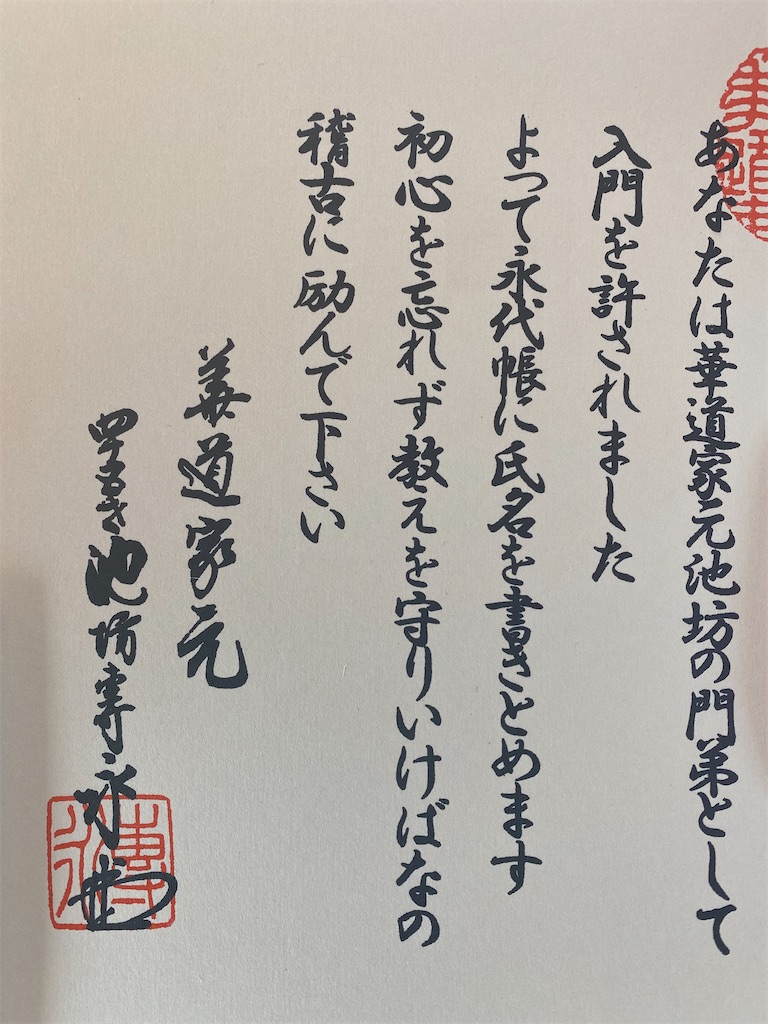 あなたは華道家元池坊の門弟として
入門を許されました
よって永代帳に氏名を書きとめます
初心を忘れず教えを守りいけばなの
稽古に励んで下さい
華道家元
池坊専永